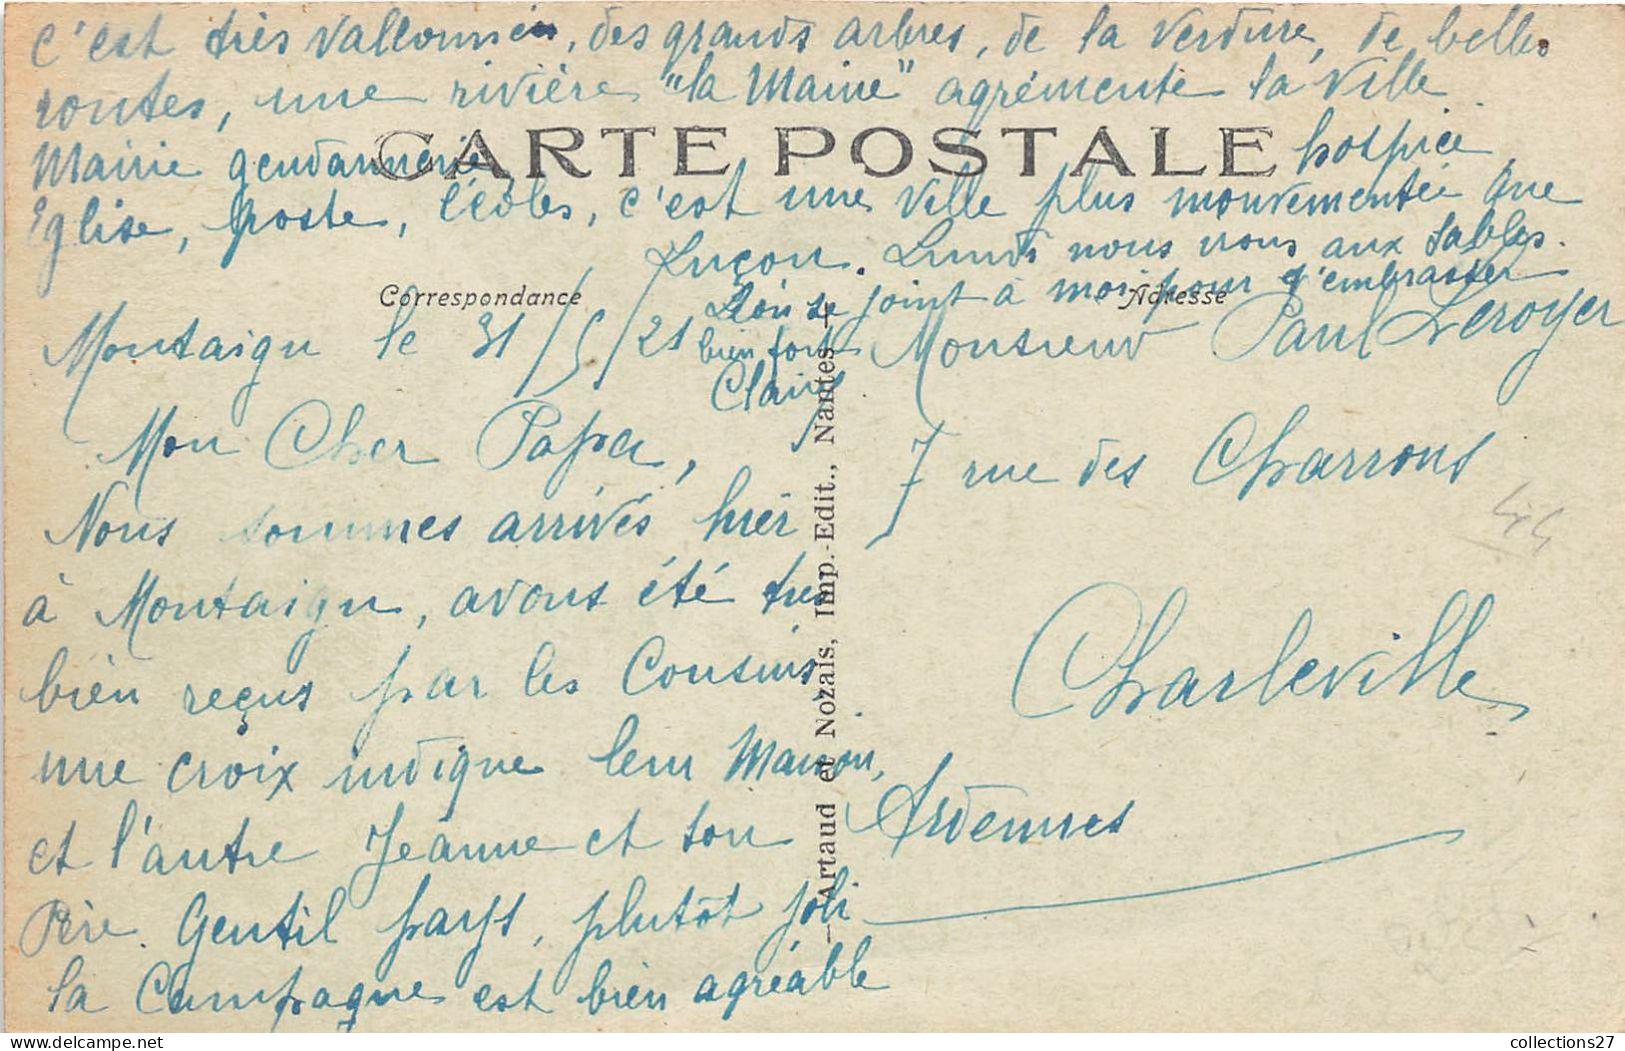 c'est très vallonnée, des grands arbres, de la verdure, de belles
routes, une rivière "la Maine" agrémente la ville
CARTE POSTALE
Mairie gendarmerie hospice
Eglise, poste, écoles, c'est une ville plus mouvementée que
Luçon. Lundi nous irons aux Sables.
se joint à moi pour t'embrasser
bien fort
Claire
Correspondance
Adresse
Montaigu le 31/5/21
Mon Cher Papa,
Nous sommes arrivés hier
à Montaigu, avons été très
bien reçus par les Cousins
une croix indique leur Maison,
et l'autre Jeanne et son
Père. Gentil pays, plutôt joli
la Campagne est bien agréable
Artaud et Nozais, Imp.-Edit., Nantes
Monsieur Paul Leroyer
7 rue des Charrons
Charleville
Ardennes
collections27